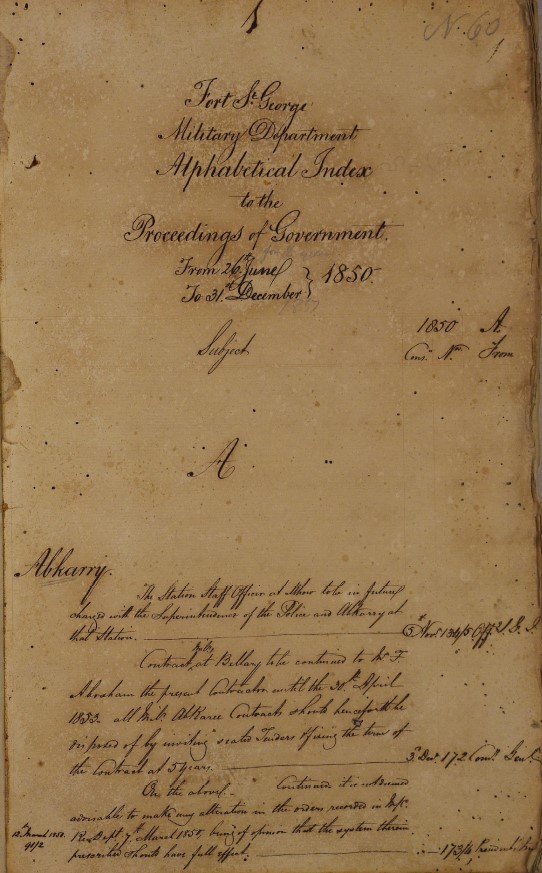 N. 60
Fort St. George
Military Department
Alphabetical Index
to the
Proceedings of Government.
From 26th June } 1850.
To 31st December
1850 A
Subject Cons. Nos. From
A
Abkarry.
The Station Staff Officer at Mhow to be in future
charged with the Superintendence of the Police and Abkarry at
that Station. 5 Novr. 134/5
Contract at Bellary to be continued to Mr. F.
Abraham the present Contractor until the 30th April
1853. all Abkaree Contracts should henceforth be
disposed of by inviting sealed Tenders the term of
the Contract at 3 years. 3. Decr. 172
On the above. Continued. it is not deemed
advisable to make any alteration in the orders recorded in
Rev. Dept. 7th March 1850, being of opinion that the system therein
12th March 1850.
91/2
prescribed should have full effect. 173/4